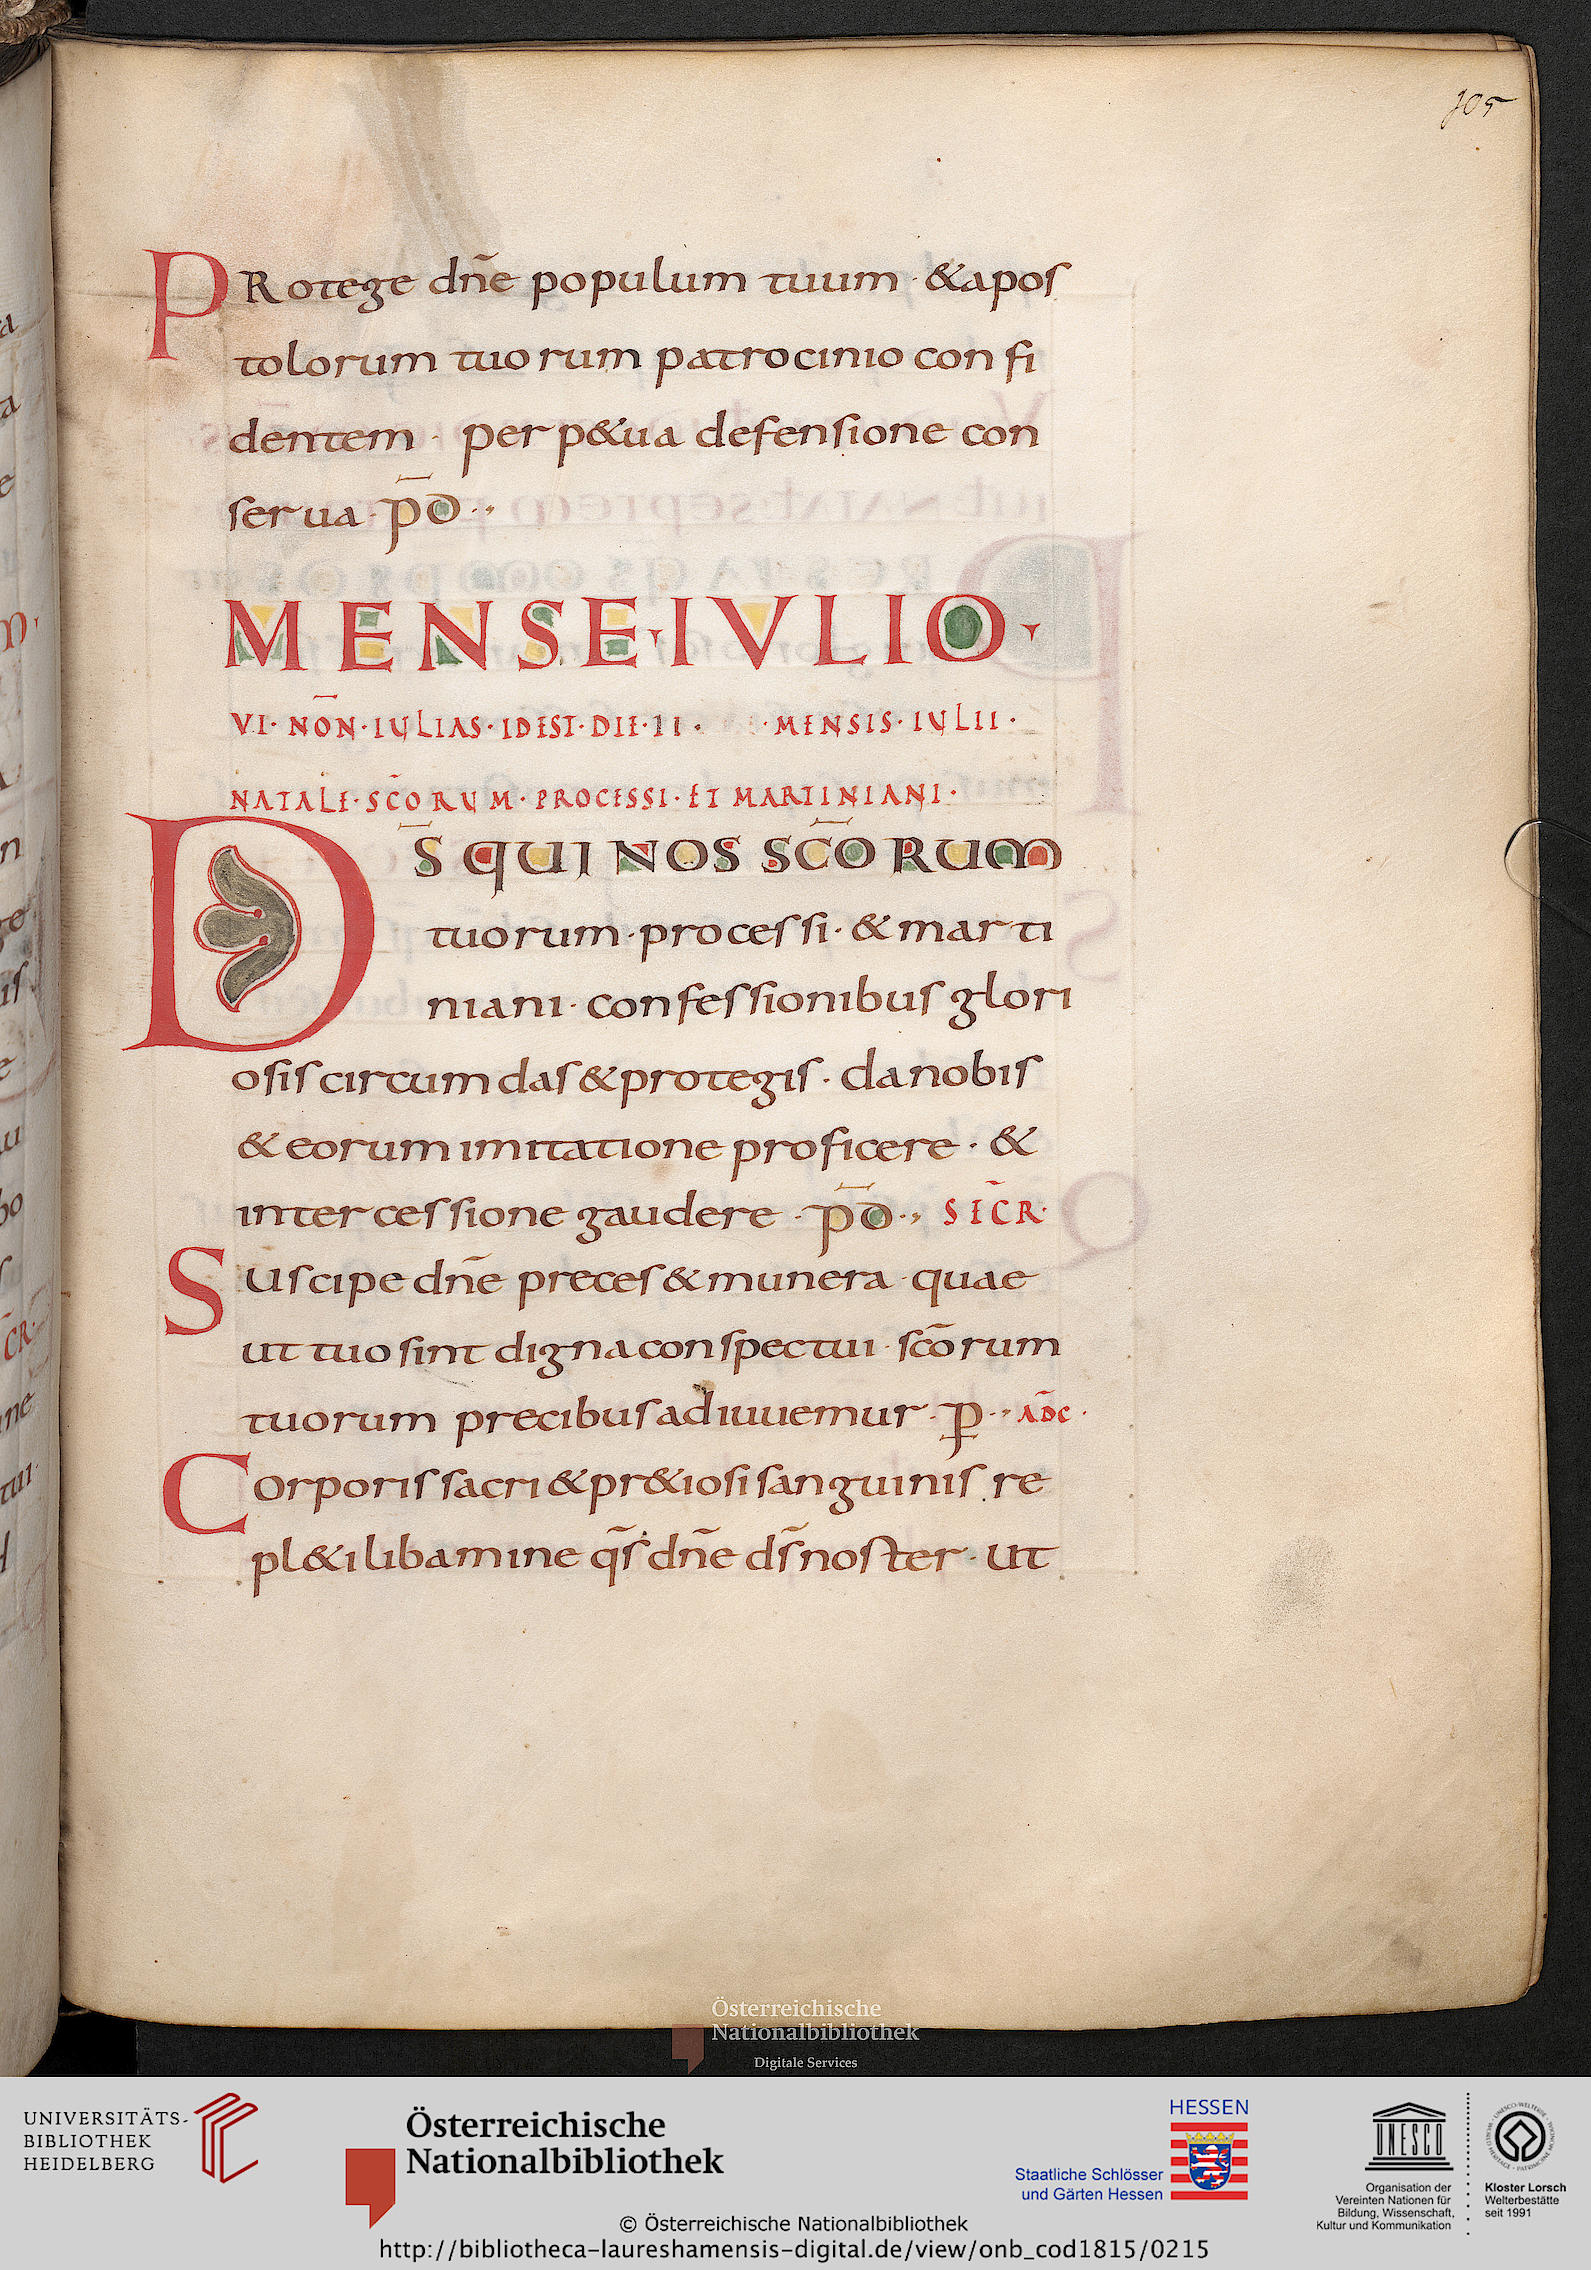 105
PRotege dn̄e populum tuum · &apos
tolorum tuorum patrocinio confi
dentem · perp&ua defensione con
serua · p̄d ·,
MENSE·IVLIO·
VI· NŌN·IULIAS·IDEST·DIE·II· ·MENSIS·IULII·
NATALE·SC̄ORUM·PROCESSI·ET MARTINIANI·
DS̄ QUI NOS SC̄ORUM
tuorum·processi·&marti
niani·confessionibus glori
osis circumdas &protegis· da nobis
&eorum imitatione proficere· &
intercessione gaudere · p̄d ·, SEC̄R·
Suscipe dn̄e preces &munera · quae
ut tuo sint digna conspectui · sc̄orum
tuorum precibus adiuuemur · p · , AD̄C·
Corporis sacri &pr&iosi sanguinis re
pl&i libamine qs̄ dn̄e ds̄ noster · ut
Österreichische
Nationalbibliothek
Digitale Services
UNIVERSITÄTS-
BIBLIOTHEK
HEIDELBERG
Österreichische
Nationalbibliothek
HESSEN
Staatliche Schlösser
und Gärten Hessen
UNESCO
Organisation der
Vereinten Nationen für
Bildung, Wissenschaft,
Kultur und Kommunikation
Kloster Lorsch
Welterbestätte
seit 1991
© Österreichische Nationalbibliothek
http://bibliotheca-laureshamensis-digital.de/view/onb_cod1815/0215